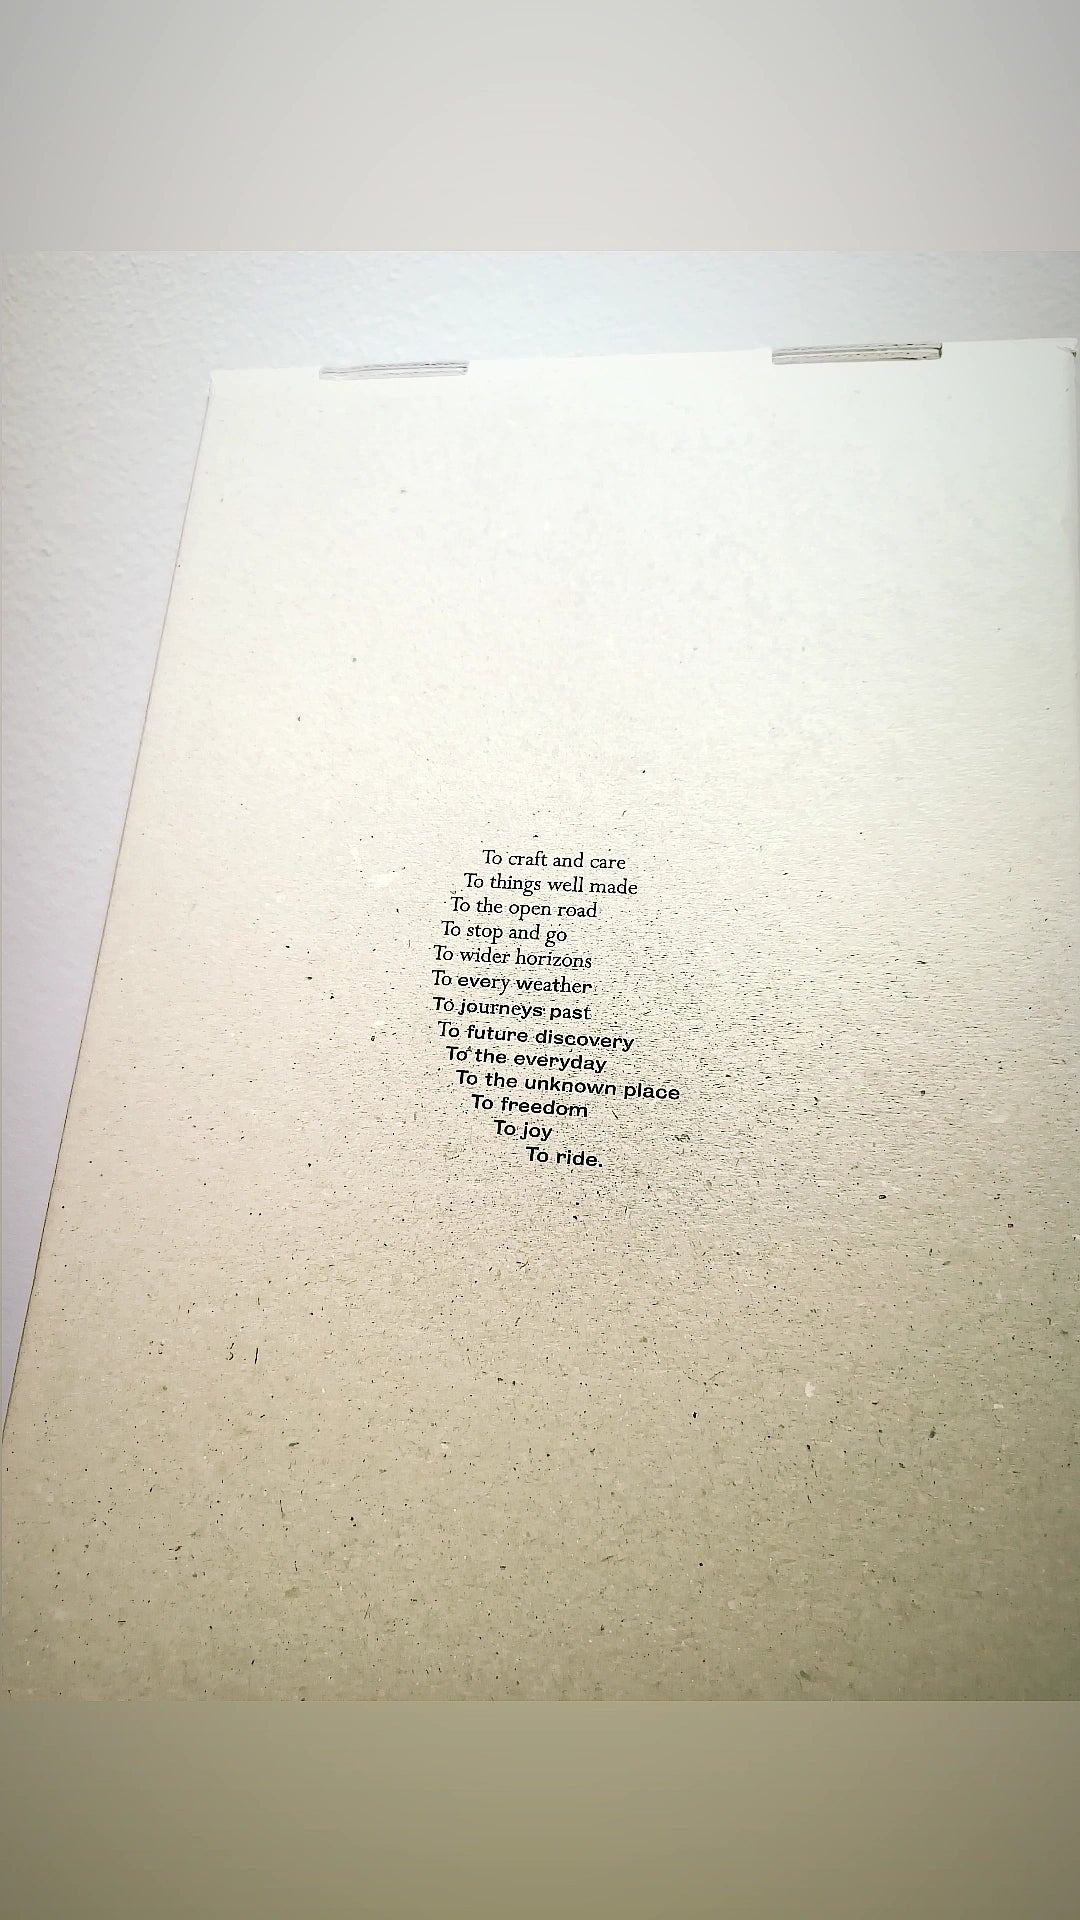 To craft and care
To things well made
To the open road
To stop and go
To wider horizons
To every weather
To journeys past
To future discovery
To the everyday
To the unknown place
To freedom
To joy
To ride.